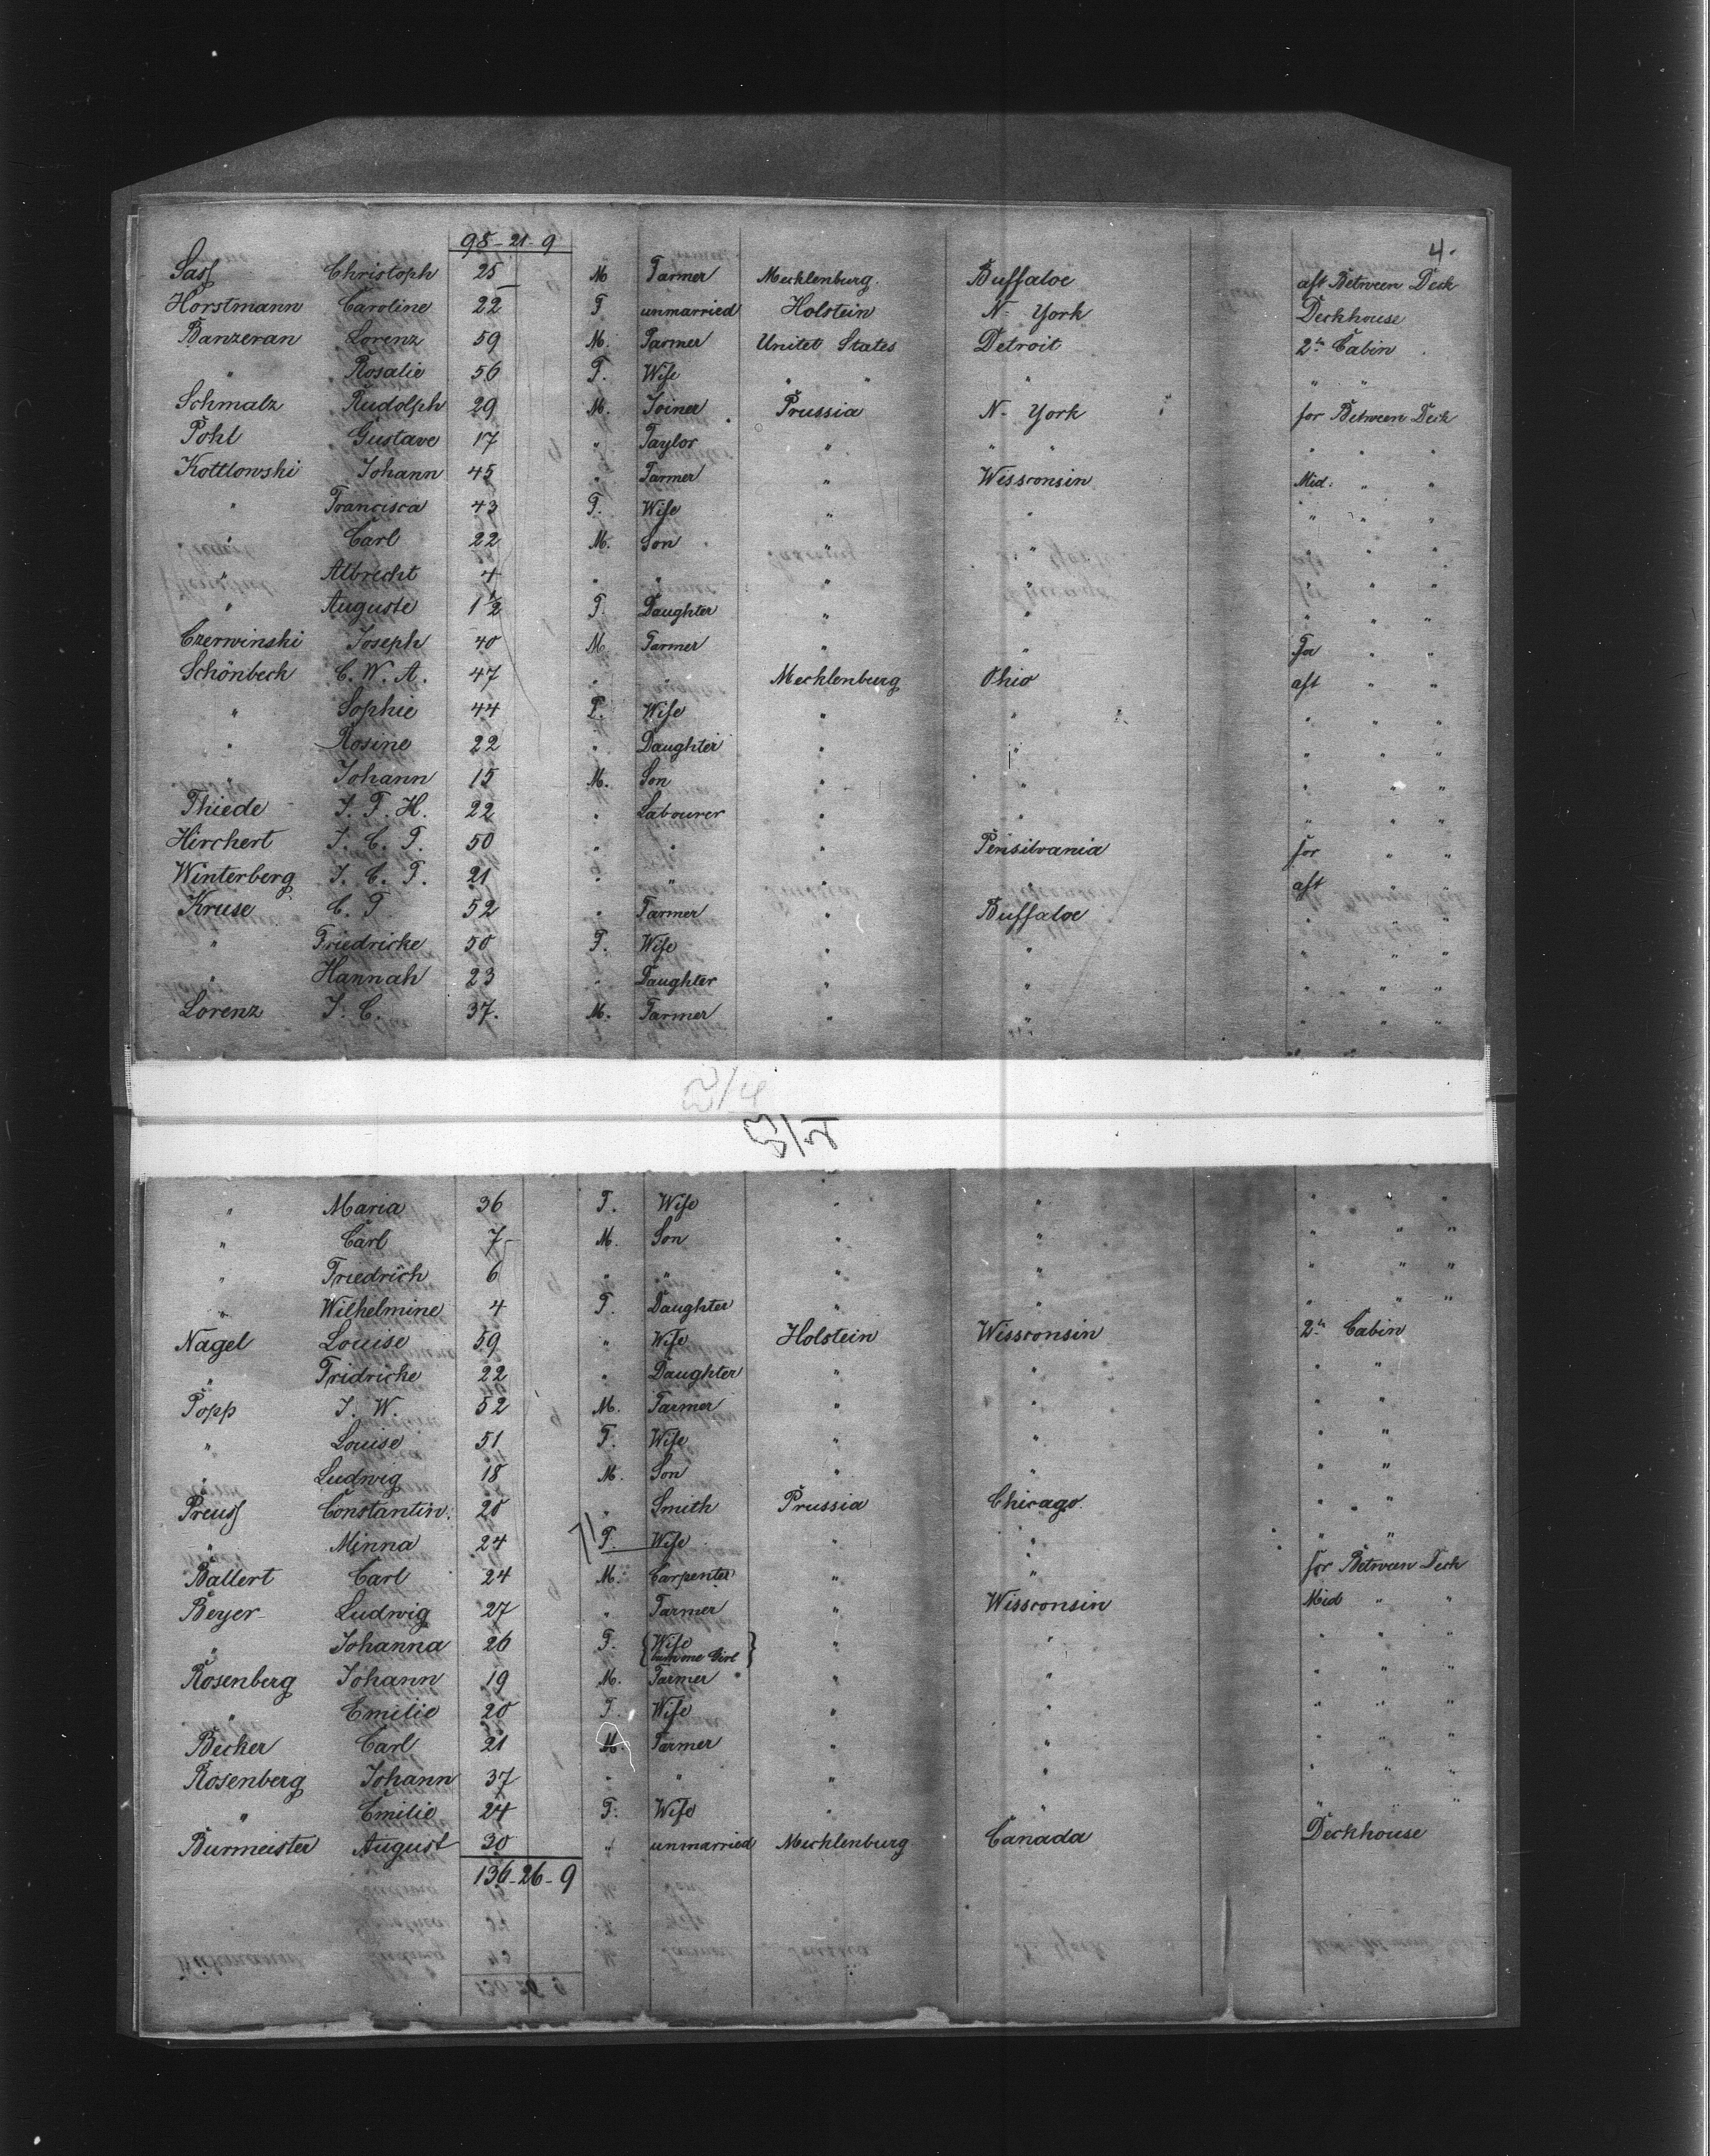 98-21-9
4.
Sass Christoph 25 M Farmer Mecklenburg. Buffaloe aft Between Deck
Horstmann Caroline 22 F unmarried Holstein N- York Deckhouse
Banzeran Lorenz 59 M. Farmer Unitet States Detroit 2n Cabin
" Rosalie 56 F. Wife " " " " "
Schmalz Rudolph 29 M. Joiner Prussia N- York for Between Deck
Pohl Gustave 17 " Taylor " " " " " "
Kottlowski Johann 45 " Farmer " Wissconsin Mid: " "
" Francisca 43 F. Wife " " " " "
" Carl 22 M. Son " " " " "
" Albrecht 4 " " " " " " "
" Auguste 1½ F. Daughter " " " " "
Czerwinski Joseph 40 M Farmer " " For " "
Schönbeck C. W. A. 47 " " Mecklenburg Ohio aft " "
" Sophie 44 F. Wife " " " " "
" Rosine 22 " Daughter " " " " "
" Johann 15 M. Son " " " " "
Thiede J. F. H. 22 " Labourer " " " " "
Hirchert J. C. F. 50 " " " Pensilvania for " "
Winterberg J. C. F. 21 " " " aft " "
Kruse C. F. 52 " Farmer " Buffaloe " " "
" Friedricke 50 F. Wife " " " " "
" Hannah 23 " Daughter " " " " "
Lorenz J. C. 37. M. Farmer " " " " "
" Maria 36 F. Wife " " " " "
" Carl 7 M. Son " " " " "
" Friedrich 6 " " " " " " "
" Wilhelmine 4 F. Daughter " " " " "
Nagel Louise 59 " Wife Holstein Wissconsin 2n Cabin
" Fridricke 22 " Daughter " " " "
Popp J. W. 52 M. Farmer " " " "
" Louise 51 F. Wife " " " "
" Ludwig 18 M. Son " " " "
Preuss Constantin. 28 " Smith Prussia Chicago. " "
" Minna 24 F. Wife " " " "
Ballert Carl 24 M. Carpenter " " for Betwean Deck
Beyer Ludwig 27 " Farmer " Wissconsin Mid " "
" Johanna 26 F. { Wife
one Girl } " " " " "
Rosenberg Johann 19 M. Farmer " " " " "
" Emilie 20 F. Wife " " " " "
Becker Carl 21 M. Farmer " " " " "
Rosenberg Johann 37 " " " " " " "
" Emilie 24 F. Wife " " " " "
Burmeister August 30 " unmarried Mecklenburg Canada Deckhouse
136-26-9